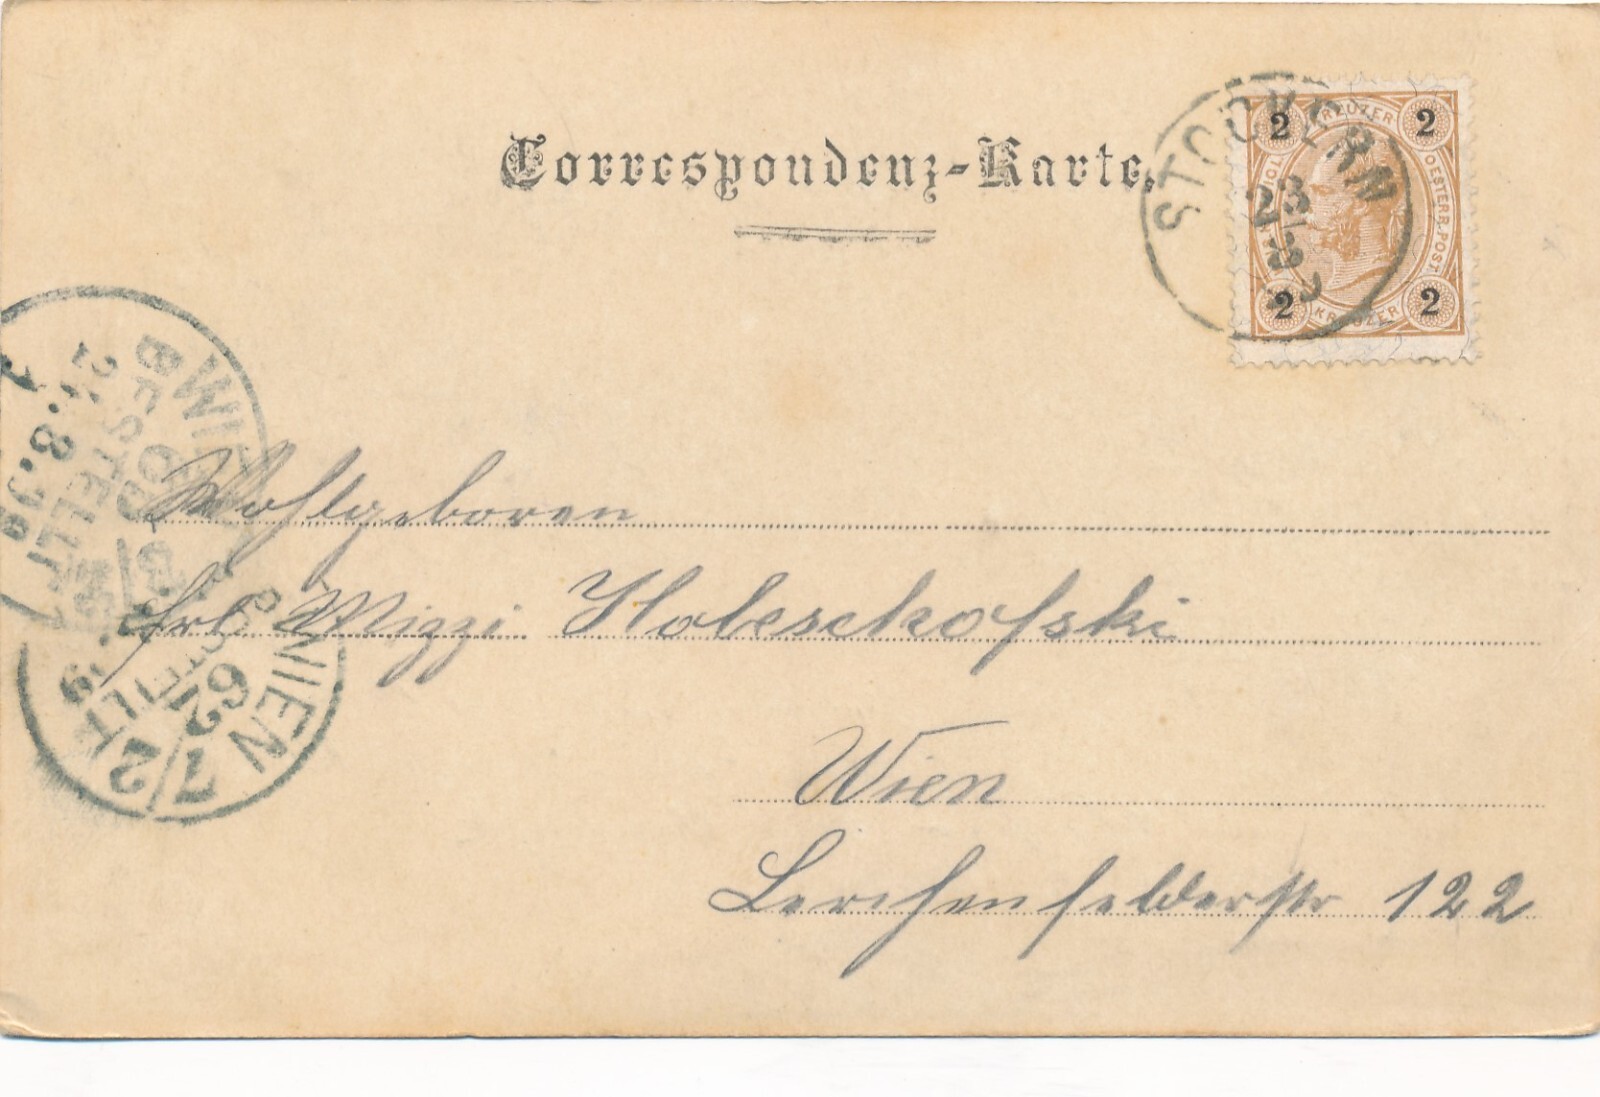 Correspondenz-Karte.
STOCKERAU
23
8
2 KREUZER 2
OESTERR. POST.
2 KREUZER 2
WIEN
BESTELLT
Wohlgeboren
Frl Mizzi Holeschofski
WIEN
7 62
2 BESTELLT
Wien
Lerchenfelderstr 122